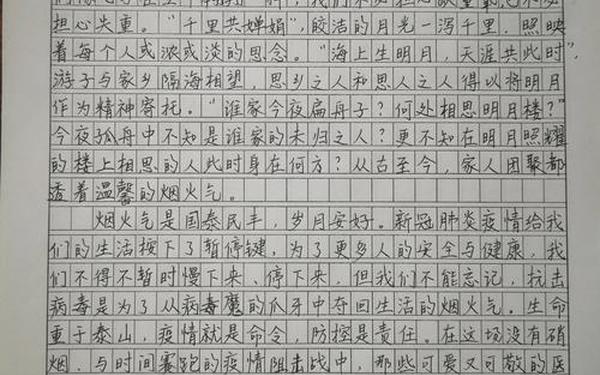 担心失重。“千里共婵娟”,皎洁的月光一泻千里,照映
着每个人或浓或淡的思念。“海上生明月,天涯共此时”,
游子与家乡隔海相望,思乡之人和思人之人得以将明月
作为精神寄托。“谁家今夜扁舟子?何处相思明月楼?”
今夜孤舟中不知是谁家的未归之人?更不知在明月照耀
的楼上相思的人此时身在何方?从古至今,家人团聚都
透着温馨的烟火气。
烟火气是国泰民丰,岁月安好。新冠肺炎疫情给我
们的生活按下了暂停键,为了更多人的安全与健康,我
们不得不暂时慢下来、停下来,但我们不能忘记,抗击
病毒是为了从病毒魔的爪牙中夺回生活的烟火气。生命
重于泰山,疫情就是命令,防控是责任。在这场没有硝
烟、与时间赛跑的疫情阻击战中,那些可爱又可敬的医